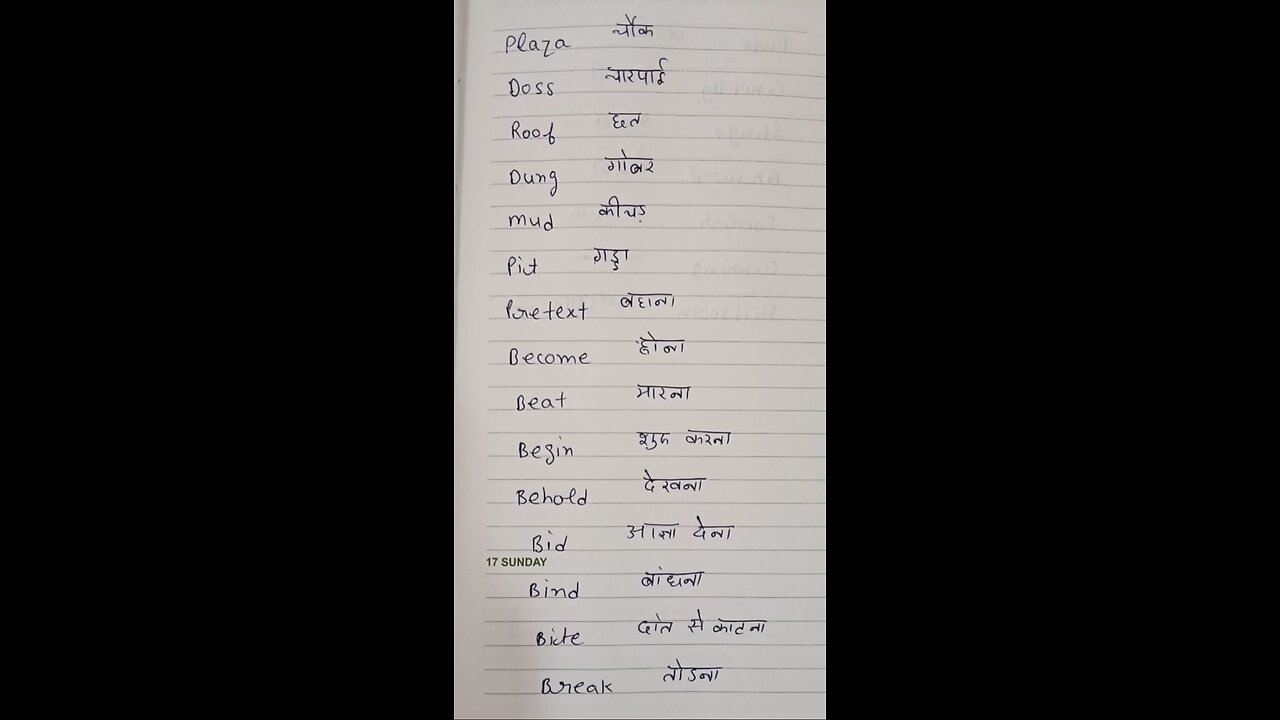 Plaza चौक
Doss चारपाई
Roof छत
Dung गोबर
Mud कीचड़
Pit गड्डा
Pretext बहाना
Become होना
Beat मारना
Begin शुरू करना
Behold देखना
Bid आज्ञा देना
17 SUNDAY
Bind बांधना
Bite दांत से काटना
Break तोडना